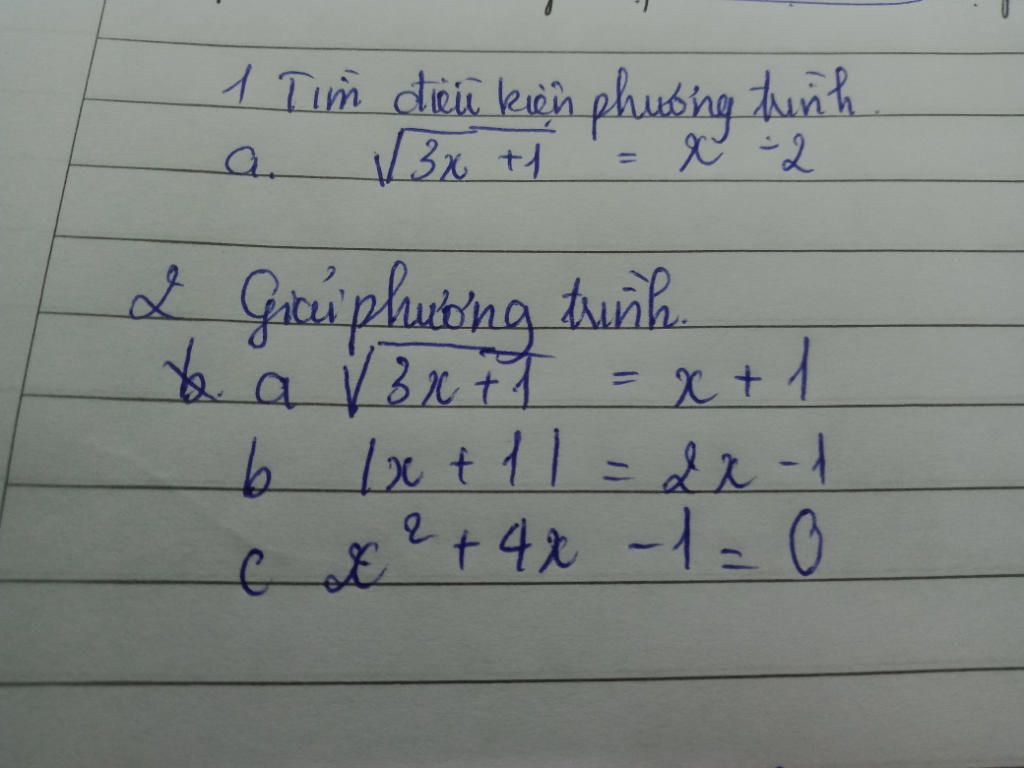 1 Tìm điều kiện phương trình.
a. √3x + 1 = x - 2
2 Giải phương trình.
a √3x + 1 = x + 1
b |x + 1| = 2x - 1
c x² + 4x - 1 = 0